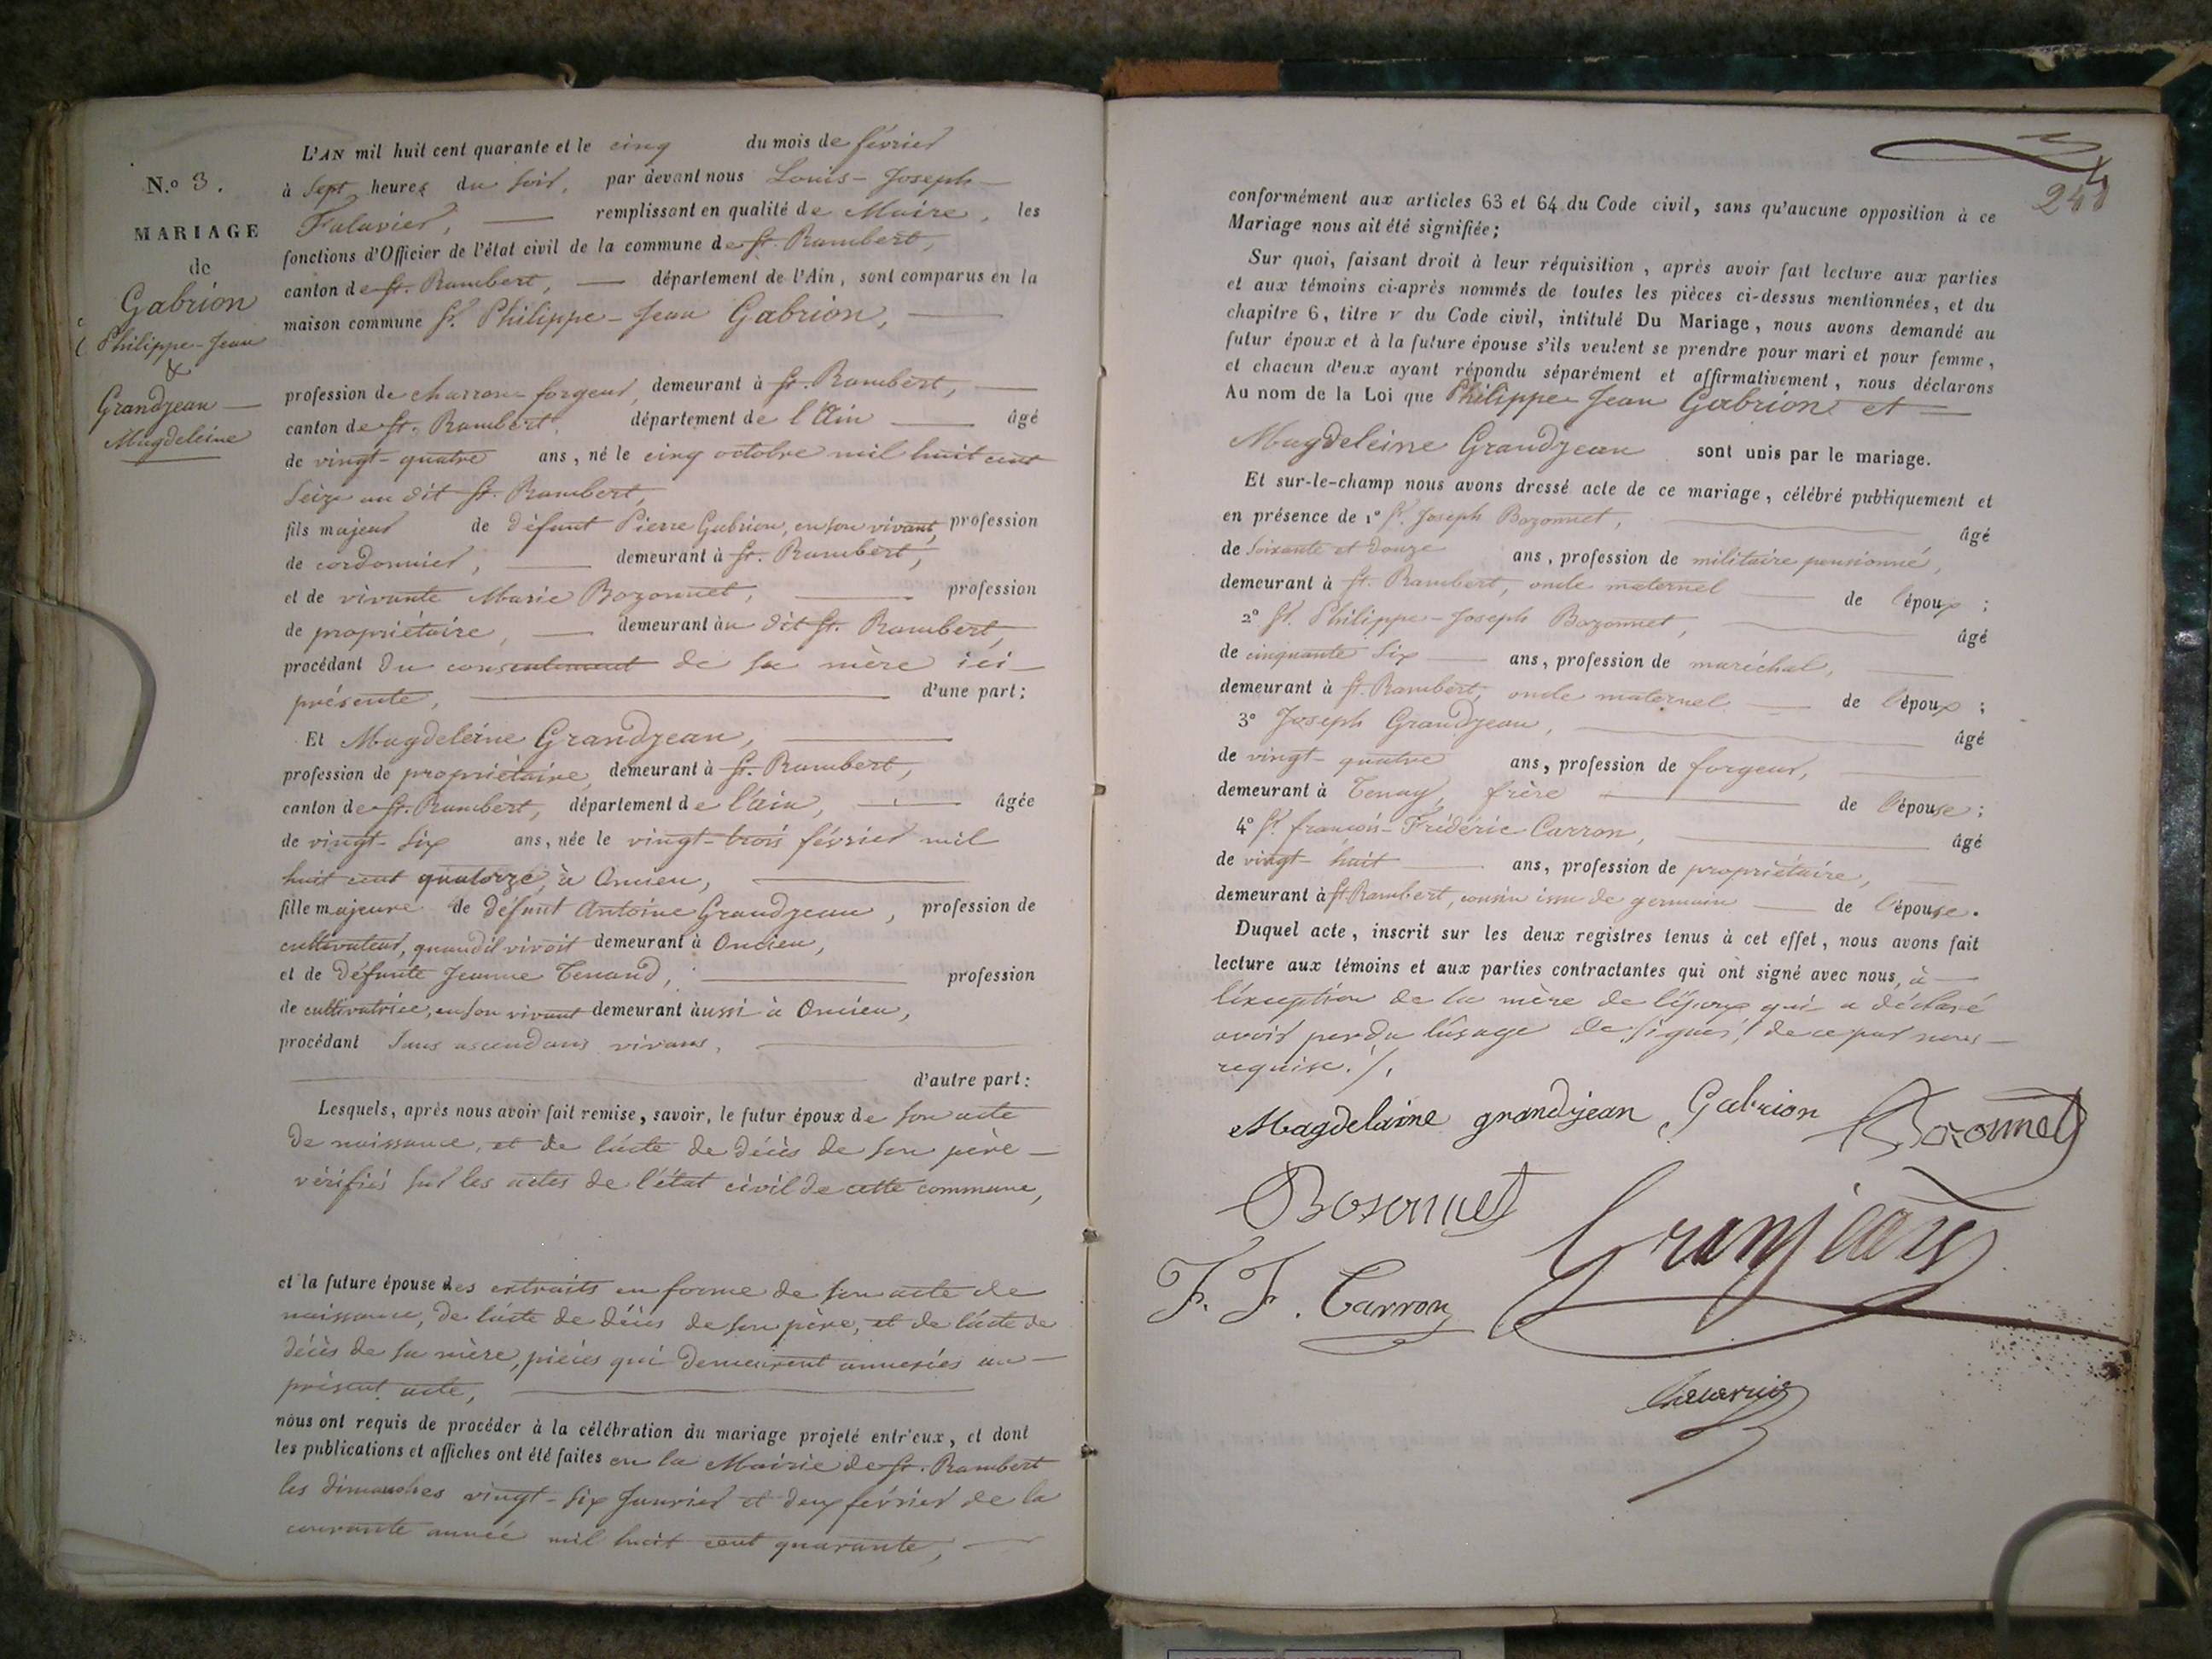 N.o 3.
MARIAGE
de
Gabrion
Philippe-Jean
&
Grandjean
Magdeleine
L'AN mil huit cent quarante et le cinq du mois de février
à Sept heures du soir, par devant nous Louis-Joseph-
Falavier, remplissant en qualité de Maire, les
fonctions d'Officier de l'état civil de la commune de St. Rambert,
canton de St. Rambert, département de l'Ain, sont comparus en la
maison commune Sr. Philippe-Jean Gabrion,
profession de charron-forgeur, demeurant à St. Rambert,
canton de St. Rambert département de l'Ain âgé
de vingt-quatre ans, né le cinq octobre mil huit cent
seize au dit St. Rambert,
fils majeur de défunt Pierre Gabrion, en son vivant, profession
de cordonnier, demeurant à St. Rambert,
et de vivante Marie Bozonnet, profession
de propriétaire, demeurant au dit St. Rambert,
procédant du consentement de sa mère ici
présente, d'une part;
Et Magdeleine Grandjean,
profession de propriétaire, demeurant à St. Rambert,
canton de St. Rambert, département de l'ain, âgée
de vingt-six ans, née le vingt-trois février mil
huit cent quatorze, à Oncieu,
fille majeure de défunt Antoine Grandjean, profession de
cultivateur, quand il vivoit demeurant à Oncieu,
et de défunte Jeanne Tenand, profession
de cultivatrice, en son vivant demeurant aussi à Oncieu,
procédant sans ascendans vivans,
d'autre part:
Lesquels, après nous avoir fait remise, savoir, le futur époux de son acte
de naissance, et de l'acte de décès de son père
vérifiés sur les actes de l'état civil de cette commune,
et la future épouse des extraits en forme de son acte de
naissance, de l'acte de décès de son père, et de l'acte de
décès de sa mère, pièces qui demeurent annexées au
présent acte,
nous ont requis de procéder à la célébration du mariage projeté entr'eux, et dont
les publications et affiches ont été faites en la Mairie de St. Rambert
les dimanches vingt-six Janvier et deux février de la
courante année mil huit cent quarante,
conformément aux articles 63 et 64 du Code civil, sans qu'aucune opposition à ce
Mariage nous ait été signifiée;
Sur quoi, faisant droit à leur réquisition, après avoir fait lecture aux parties
et aux témoins ci-après nommés de toutes les pièces ci-dessus mentionnées, et du
chapitre 6, titre v du Code civil, intitulé Du Mariage, nous avons demandé au
futur époux et à la future épouse s'ils veulent se prendre pour mari et pour femme,
et chacun d'eux ayant répondu séparément et affirmativement, nous déclarons
Au nom de la Loi que Philippe-Jean Gabrion et
Magdeleine Grandjean sont unis par le mariage.
Et sur-le-champ nous avons dressé acte de ce mariage, célébré publiquement et
en présence de 1° Sr. Joseph Bozonnet, âgé
de soixante et douze ans, profession de militaire pensionné,
demeurant à St. Rambert, oncle maternel de l'époux;
2° Sr. Philippe-Joseph Bozonnet, âgé
de cinquante six ans, profession de maréchal,
demeurant à St. Rambert, oncle maternel de l'époux;
3° Joseph Grandjean, âgé
de vingt-quatre ans, profession de forgeur,
demeurant à Tenay, frère de l'épouse;
4° Sr. françois-Frédéric Carron, âgé
de vingt-huit ans, profession de propriétaire,
demeurant à St. Rambert, cousin issu de germain de l'épouse.
Duquel acte, inscrit sur les deux registres tenus à cet effet, nous avons fait
lecture aux témoins et aux parties contractantes qui ont signé avec nous, à
l'exception de la mère de l'époux qui a déclaré
avoir perdu l'usage de signer, de ce par nous
requise./.
Magdelaine grandjean Gabrion Bozonnet
Bosonnet Granjean
F. F. Carron